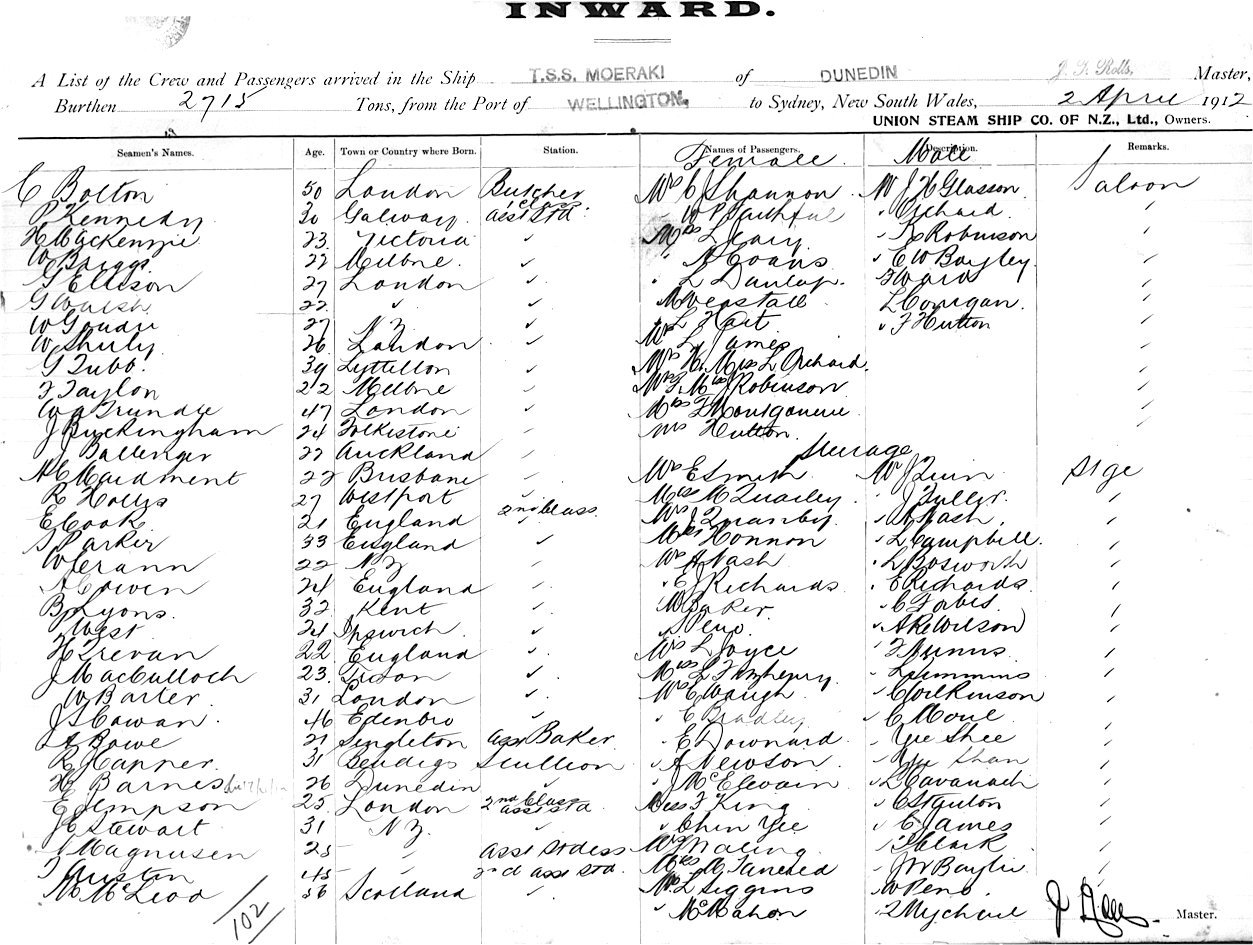 INWARD.
A List of the Crew and Passengers arrived in the Ship T.S.S. MOERAKI of DUNEDIN J. F. Rolls, Master,
Burthen 2715 Tons, from the Port of WELLINGTON, to Sydney, New South Wales, 2 April 1912
UNION STEAM SHIP CO. OF N.Z., Ltd., Owners.
Seamen's Names. Age. Town or Country where Born. Station. Names of Passengers. Description. Remarks.
Female. Male
C Bolton 50 London Butcher Mrs C J Shannon Mr J H Glasson Saloon
P Kennedy 30 Galway 1 Class asst Std " W P Faithful " Orchard "
H Mackenzie 23 Victoria " Miss L Leary " R Robinson "
W Briggs 22 Melbne " " A Evans " E W Bayley "
G Ellison 27 London " " L Dunlop F Ward "
G Walsh 22 " " L Corrigan "
W 27 NZ " " L Hart " F Hutton "
W 26 London " Mrs L James
G Tubb 39 Lyttelton " Mrs H. Miss L Orchard
F Taylor 22 Melbne " Mrs F. Miss J Robinson
W A Trundle 47 London " Mrs F Montgomerie
J Buckingham 24 Folkistone " Mrs Hutton
J Ballenger 27 Auckland " Steerage
A C Maidment 22 Brisbane " Mrs E Smith Mr J Quin Stge
R Hollys 27 Westport " Miss M " J Fuller "
E Cook 21 England 2nd Class " Mrs J Quanby " A Nash "
S Parker 33 England " Miss Honnon " L Campbell "
W Crann 22 NZ " Mrs A Nash " L Bosworth "
A Cowen 24 England " " E J Richards " E Richards "
B Lyons 32 Kent " " W Baker " C Forbes "
West 24 Ipswich " " S Peno " A R Wilson "
H Trevan 22 England " Mrs L Joyce "
J MacCulloch 23 " Miss L Fitzhenry L Simmins "
W Barter 31 London " Mrs E Waugh " C Wilkinson "
J S Cowan 46 Edenbro " " E Bradley " C "
A Bowe 21 Singleton asst Baker " E Downard " Yee Shee "
R Happer 31 Bendigo Scullion " A Newson " Shan "
H Barnes 26 Dunedin " " J McElwain " L Cavanach "
E Jempson 25 London 2nd Class asst Std Miss F King " C Stanton "
J E Stewart 31 NZ " " Chin Yee " C James "
Magnusen 25 " asst Stdess Mrs J Waling " Clark "
T Austin 45 " 2nd asst Std Miss M Tancred " J W Baylie "
M McLeod 36 Scotland " Mrs L Siggins " W Peno "
102 " McMahon " Mycheul J F Rolls Master.